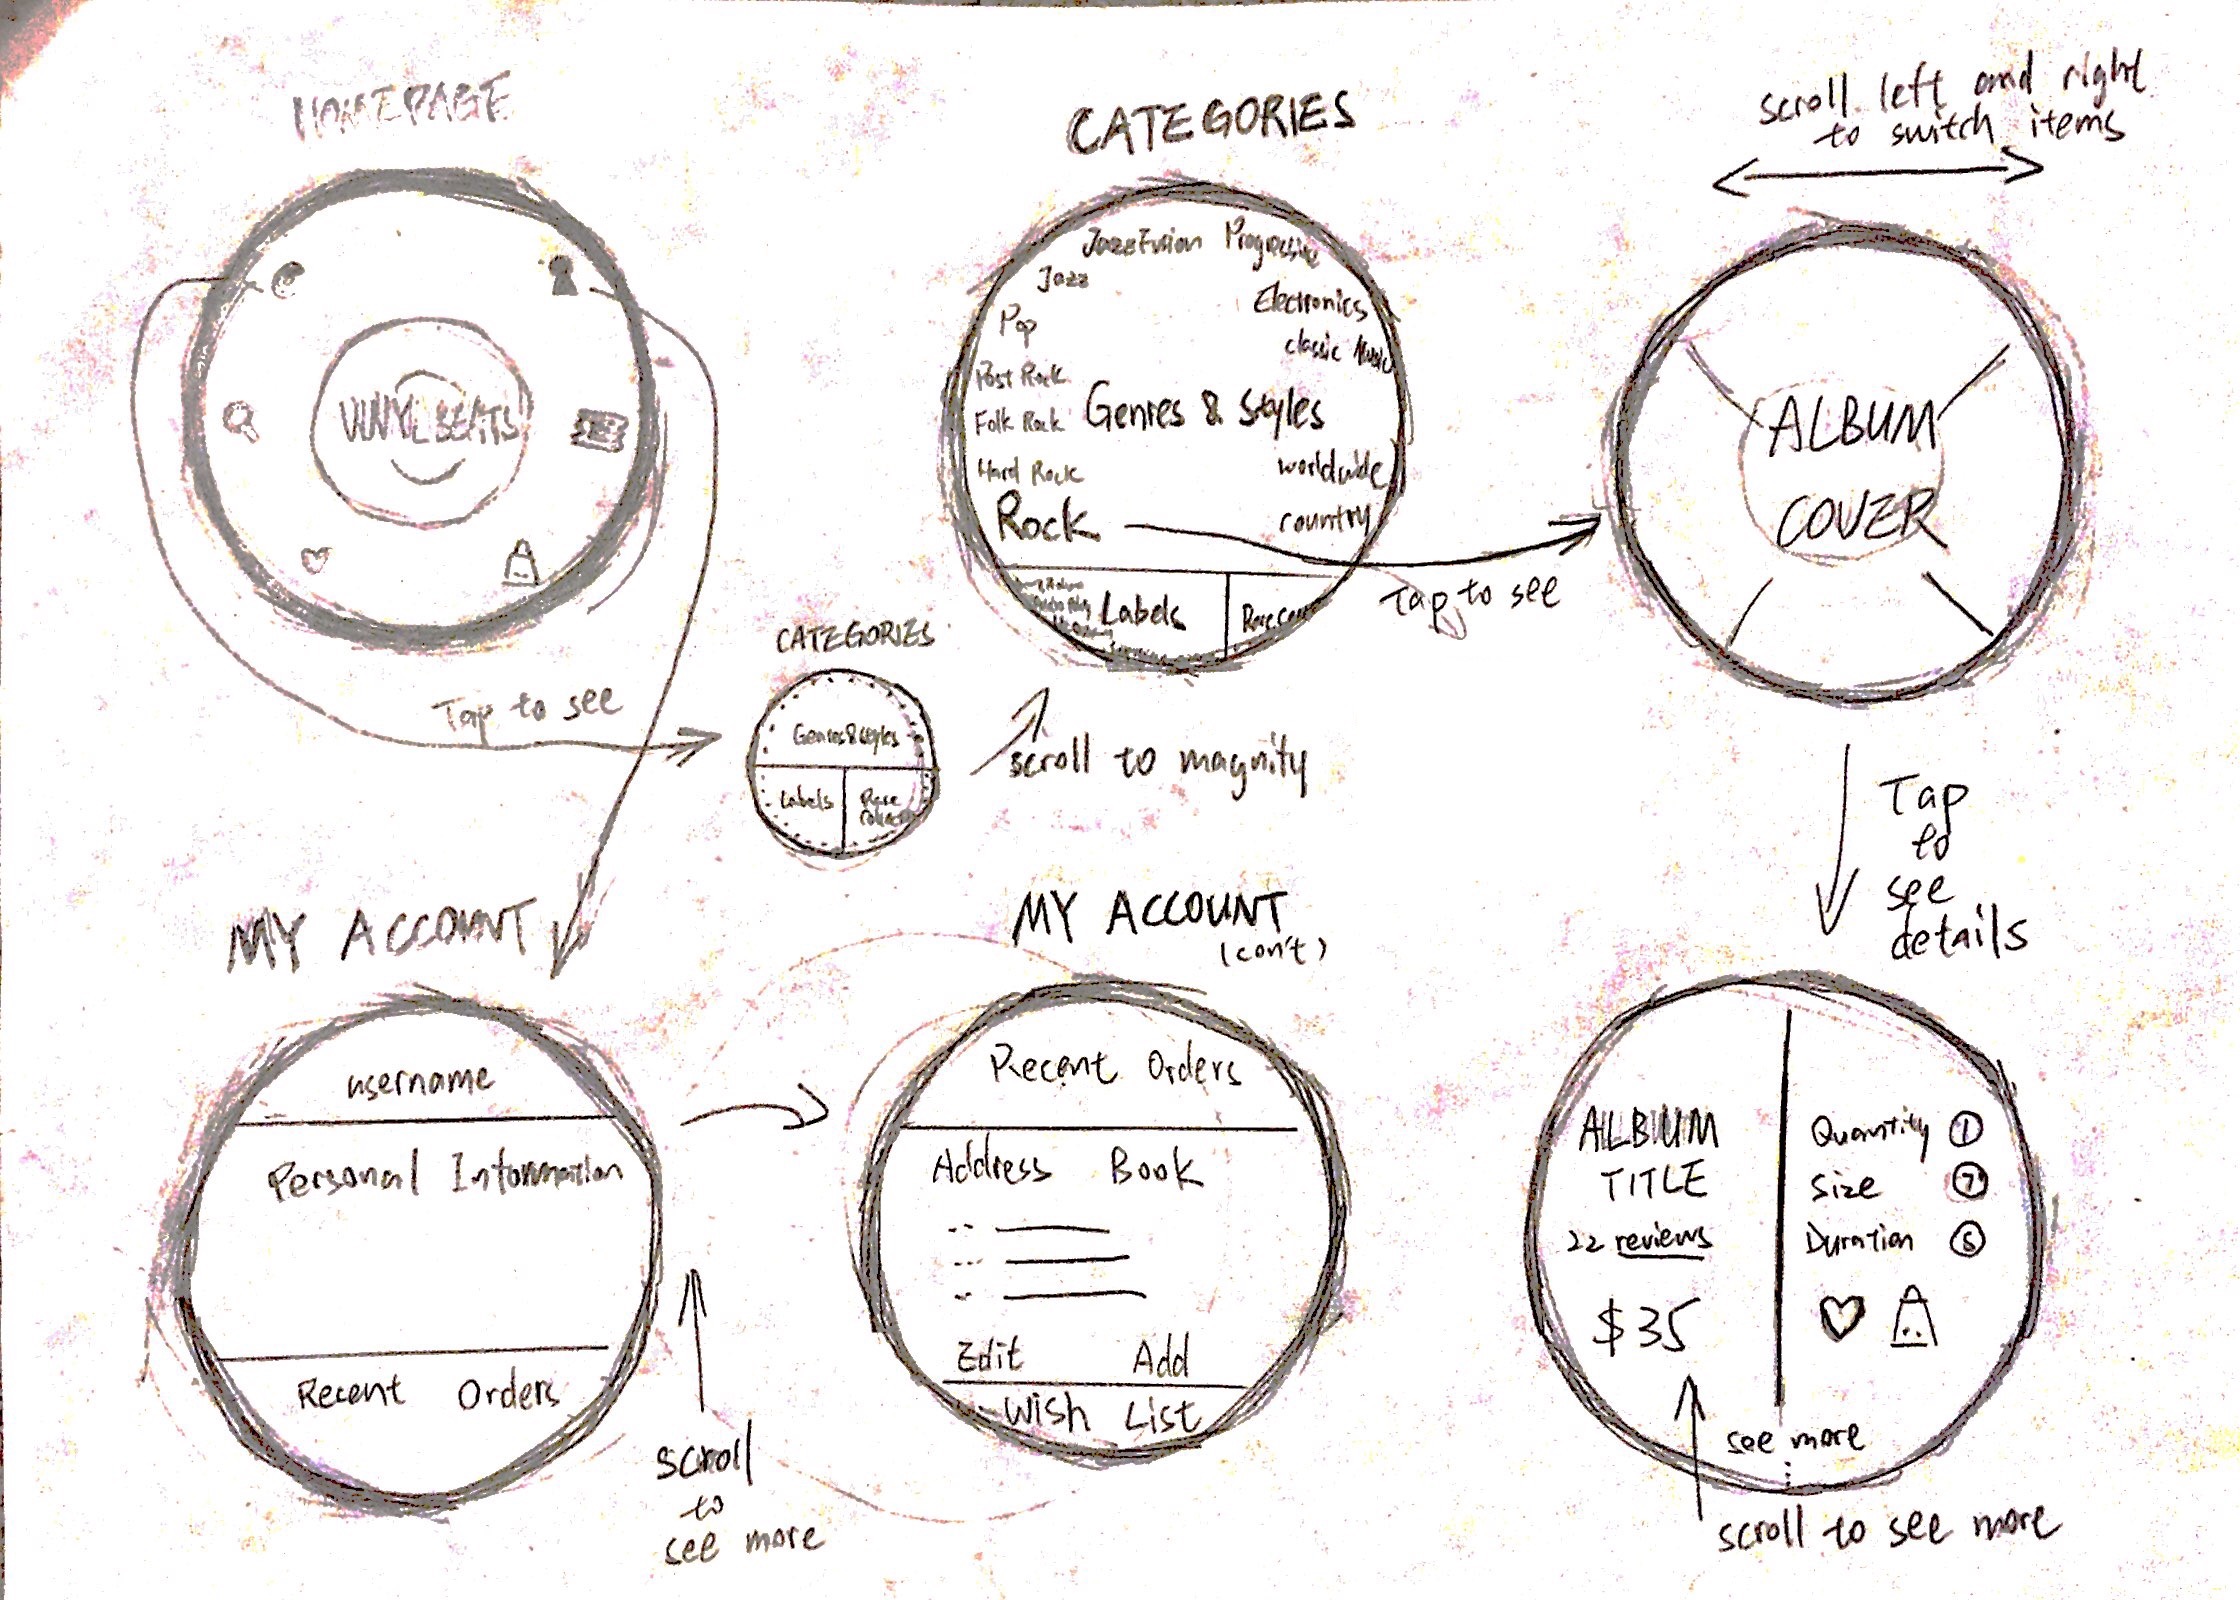 HOMEPAGE
VINYL BEATS
Tap to see
CATEGORIES
Genres & Styles
Labels
Rare
scroll to magnity
CATEGORIES
Jazz Fusion
Progressive
Jazz
Electronics
Pop
classic Music
Post Rock
Folk Rock
Genres & Styles
Hard Rock
worldwide
Rock
country
Labels
Rare
Tap to see
scroll left and right
to switch items
ALBUM
COVER
Tap
to
see
details
MY ACCOUNT
username
Personal Information
Recent Orders
scroll
to
see more
MY ACCOUNT
(con't)
Recent Orders
Address Book
Edit Add
Wish List
ALBUM
TITLE
22 reviews
$35
Quantity 1
Size 7
Duration
see more
scroll to see more